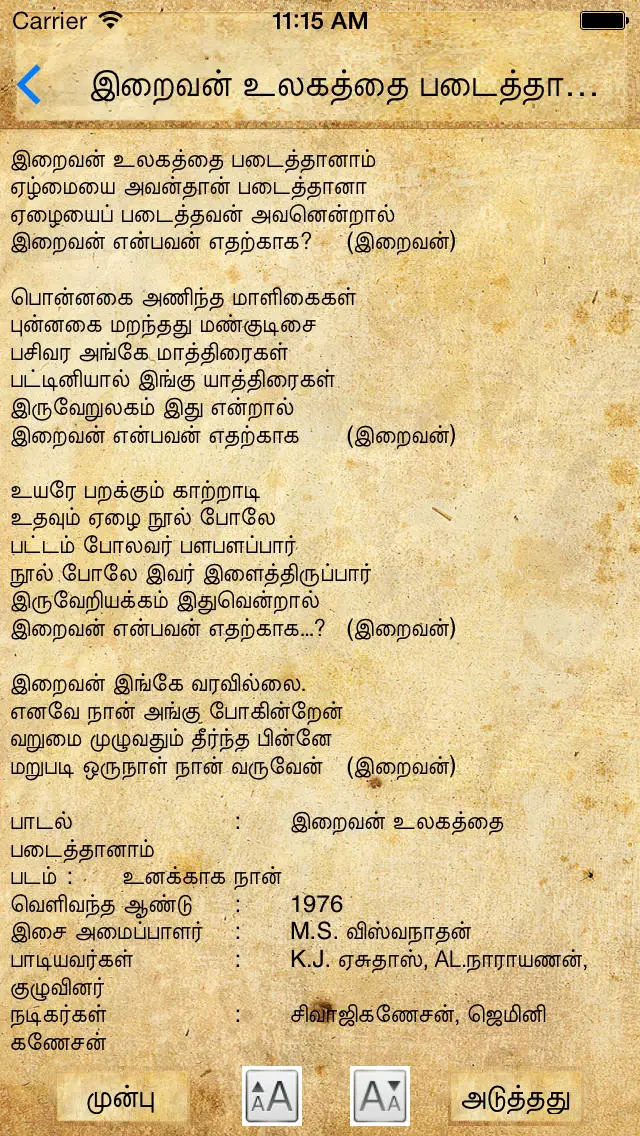 Carrier 11:15 AM
இறைவன் உலகத்தை படைத்தா...
இறைவன் உலகத்தை படைத்தானாம்
ஏழ்மையை அவன்தான் படைத்தானா
ஏழையைப் படைத்தவன் அவனென்றால்
இறைவன் என்பவன் எதற்காக? (இறைவன்)
பொன்னகை அணிந்த மாளிகைகள்
புன்னகை மறந்தது மண்குடிசை
பசிவர அங்கே மாத்திரைகள்
பட்டினியால் இங்கு யாத்திரைகள்
இருவேறுலகம் இது என்றால்
இறைவன் என்பவன் எதற்காக (இறைவன்)
உயரே பறக்கும் காற்றாடி
உதவும் ஏழை நூல் போலே
பட்டம் போலவர் பளபளப்பார்
நூல் போலே இவர் இளைத்திருப்பார்
இருவேறியக்கம் இதுவென்றால்
இறைவன் என்பவன் எதற்காக...? (இறைவன்)
இறைவன் இங்கே வரவில்லை.
எனவே நான் அங்கு போகின்றேன்
வறுமை முழுவதும் தீர்ந்த பின்னே
மறுபடி ஒருநாள் நான் வருவேன் (இறைவன்)
பாடல் : இறைவன் உலகத்தை
படைத்தானாம்
படம் : உனக்காக நான்
வெளிவந்த ஆண்டு : 1976
இசை அமைப்பாளர் : M.S. விஸ்வநாதன்
பாடியவர்கள் : K.J. ஏசுதாஸ், AL.நாராயணன்,
குழுவினர்
நடிகர்கள் : சிவாஜிகணேசன், ஜெமினி
கணேசன்
முன்பு AA AA அடுத்தது